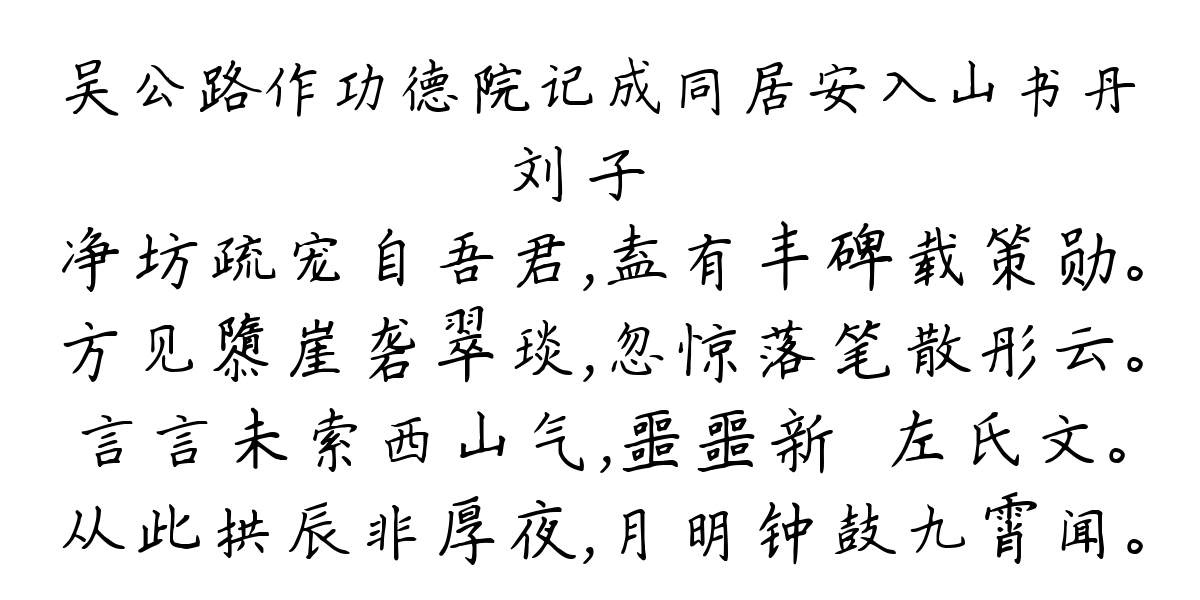 吴公路作功德院记成同居安入山书丹
刘子
净坊疏宠自吾君,盍有丰碑载策勋。
方见隳崖砻翠琰,忽惊落笔散彤云。
言言未索西山气,噩噩新 左氏文。
从此拱辰非厚夜,月明钟鼓九霄闻。